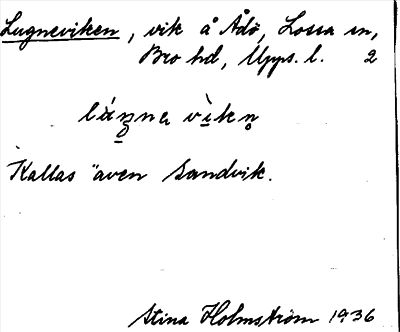 Lugneviken, vik å Ådö, Lossa sn,
Bro hd, Upps. l. 2
Kallas även Sandvik.
Stina Holmström 1936